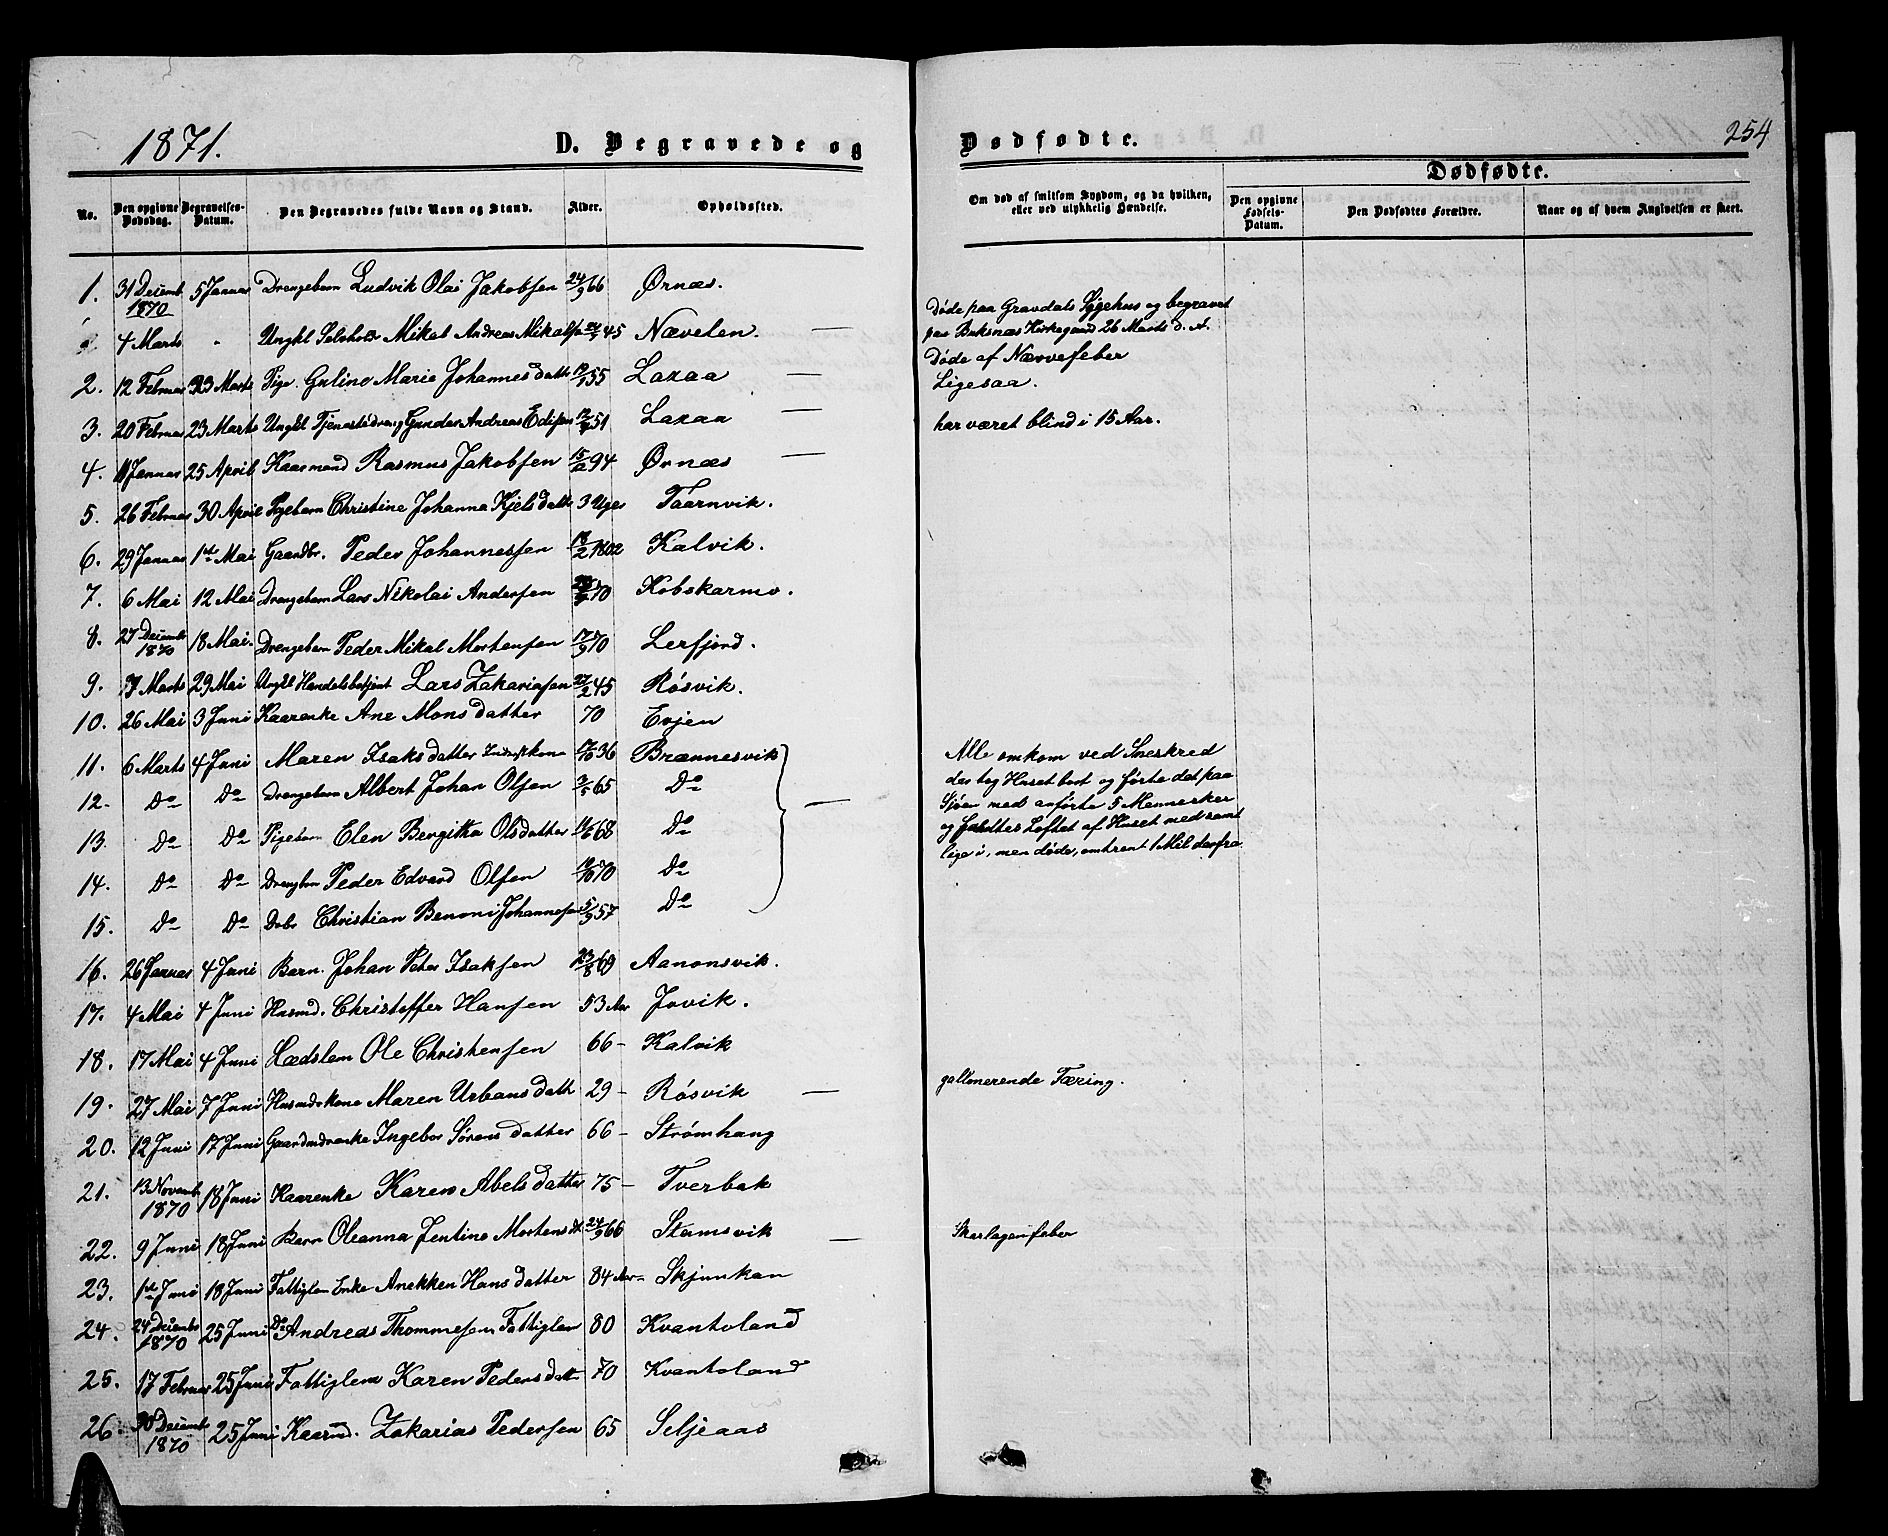 1871.
D. Begravede og
Dødfødte.
254
Dødfødte.
No.
Den opgivne Dødsdag.
Begravelses-Datum.
Den Begravedes fulde Navn og Stand.
Alder.
Opholdssted.
Om død af smitsom Sygdom, og da hvilken, eller ved ulykkelig Hændelse.
Den opgivne Fødsels-Datum.
Den Dødfødtes Forældre.
Naar og af hvem Angivelsen er skeet.
1. 31 Decemb. 1870 5 Januar Drengebarn Ludvik Olai Jakobsen 24/9 66 Ørnæs.
4 Marts " Ungkl Mikal Andreas Mikalsen 45 Nævelen. —
Døde paa Gravdals Sygehus og begravet
paa Buksnæs Kirkegaard 26 Marts d. A.
Døde af Nærvefeber
2. 12 Februar 23 Marts Pige. Guline Marie Johannesdatt 55 Laxaa —
Ligesaa.
3. 20 Februar 23 Marts Ungkl Tjenestedreng Gunder Andreas Edisen 51 Laxaa —
har været blind i 15 Aar.
4. 11 Januar 25 April Kaarmand Rasmus Jakobsen 94 Ørnæs —
5. 26 Februar 30 April Pigebarn Christine Johanna Kjelsdatt 3 Uger Taarnvik.
6. 29 Januar 1ste Mai Gaardbr. Peder Johannessen 18/2 1802 Kalvik.
7. 6 Mai 12 Mai Drengebarn Lars Nikolai Andersen 70 Kobskarmo.
8. 27 Decemb 1870 18 Mai. Drengebarn Peder Mikal Mortensen 17/9 70 Lerfjord.
9. Marts 29 Mai Ungkl Handelsbetjent Lars Zakariasen 27/2 45 Røsvik.
10. 26 Mai 3 Juni Kaarenke Ane Monsdatter 70 Evjen
11. 6 Marts 4 Juni Maren Isaksdatter kone 36 Brænnesvik
12. Do Do Drengebarn Albert Johan Olsen 65 Do
13. Do Do Pigebarn Elen Bergitha Olsdatter 68 Do
14. Do Do Drengebn Peder Edvard Olsen 70 Do
15. Do Do Dobr Christian Benoni Johannesen 5/9 57 Do
—
Alle omkom ved Sneskred
der tog Huset bort og førte det paa
Sjøen med anførte 5 Mennesker
og Loftet af Huset med samt
lige i, men døde, omtrent 1 Mil derfra
16. 26 Januar 4 Juni Barn. Johan Peter Isaksen 69 Aanonsvik.
17. 4 Mai 4 Juni Husmd. Christoffer Hansen 53 Aar Jovik.
18. 17 Mai 4 Juni Lædslem Ole Christensen 66 – Kalvik
19. 27 Mai 7 Juni Husmdskone Maren Urbansdatt 29 – Røsvik —
gallonerende Tæring.
20. 12 Juni 17 Juni Gaardmdsenke Ingebor Sørensdatter 66 – Strømhang
21. 13 Novemb 1870 18 Juni Kaarenke Karen Abelsdatter 75 – Tverbak
22. 9 Juni 18 Juni Barn Oleanna Jentine Mortensdt 24/9 66 Stamsvik —
Skarlagenfeber
23. 1ste Juni 18 Juni Fattiglem Enke Anekken Hansdatter 84 Aar – Skjunkan
24. 24 Decemb 1870 25 Juni Do Andreas Thommesen Fattiglem 80 Kvantoland
25. 17 Februar 25 Juni Fattiglem Karen Pedersdatt 70 Kvantoland
26. 30 Decemb 1870 25 Juni Kaarmd. Zakarias Pedersen 65 Seljeaas